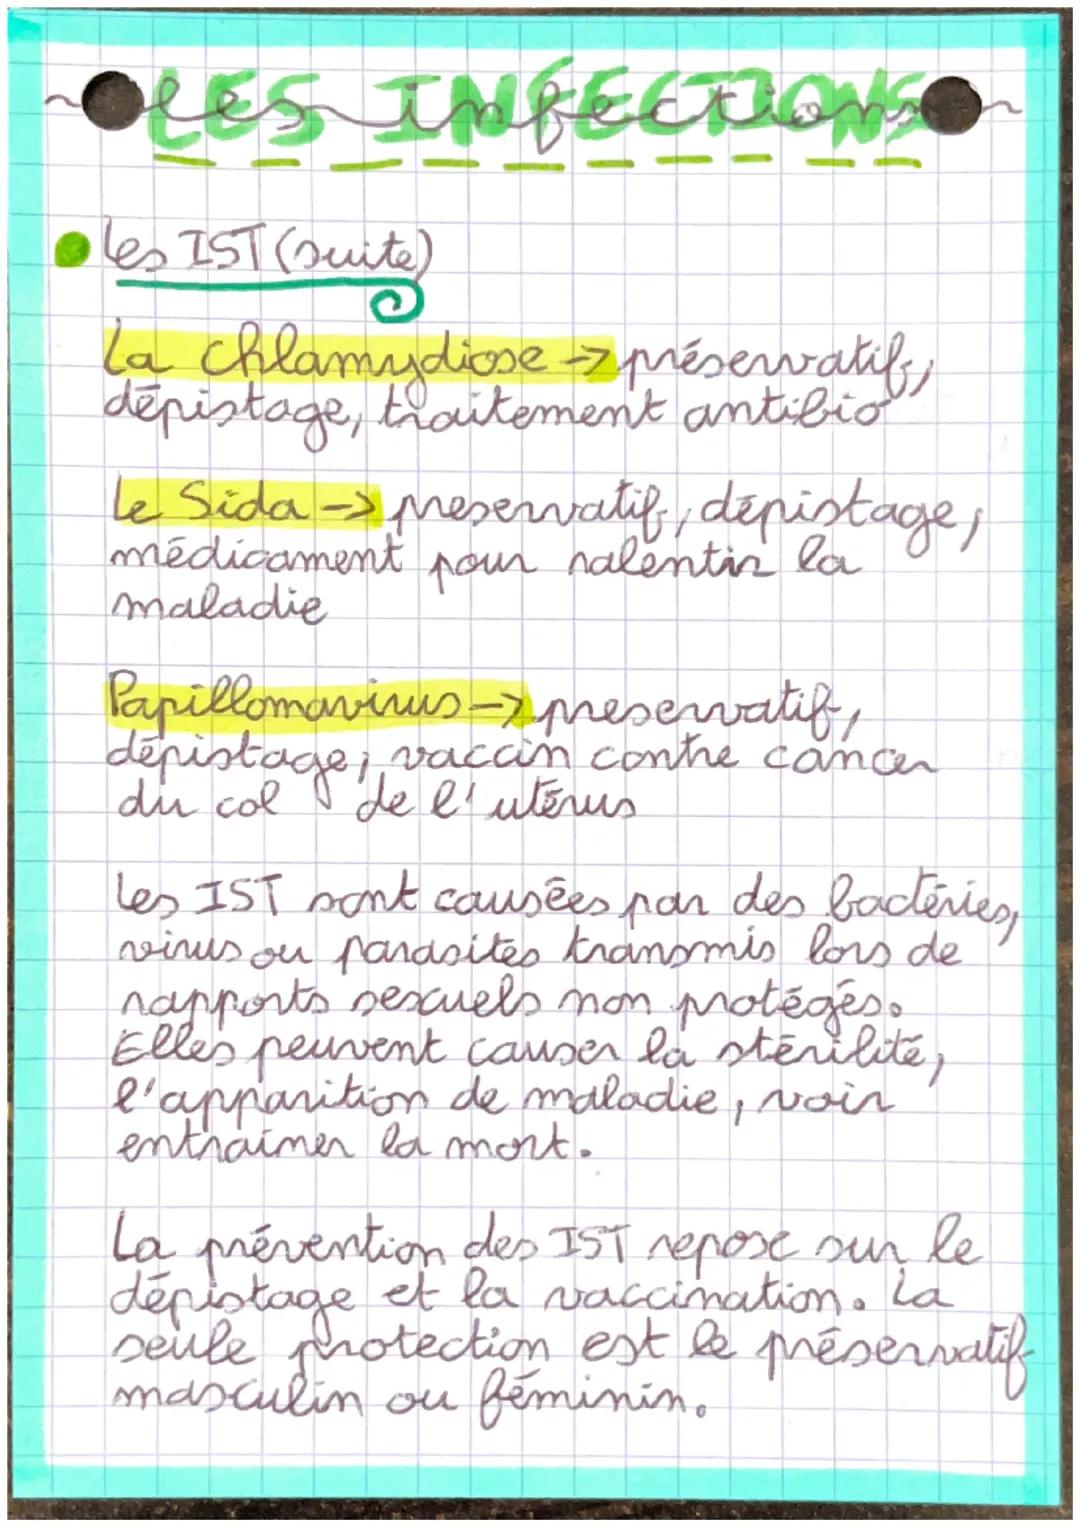 LES INFECTIONS
les infections
les IST (suite)
La Chlamydiose -> préservatif,
dépistage, traitement antibio
Le Sida -> preservatif, dépistage,
médicament pour ralentir la
maladie
Papillomavirus -> preservatif,
dépistage, vaccin contre cancer
du col de l'utérus
Les IST sont causées par des bactéries,
virus ou parasites transmis lors de
rapports sexuels non protégés.
Elles peuvent causer la stérilité,
l'apparition de maladie, voir
entrainer la mort.
La prévention des IST repose sur le
dépistage et la vaccination. La
seule protection est le préservatif
masculin ou féminin.